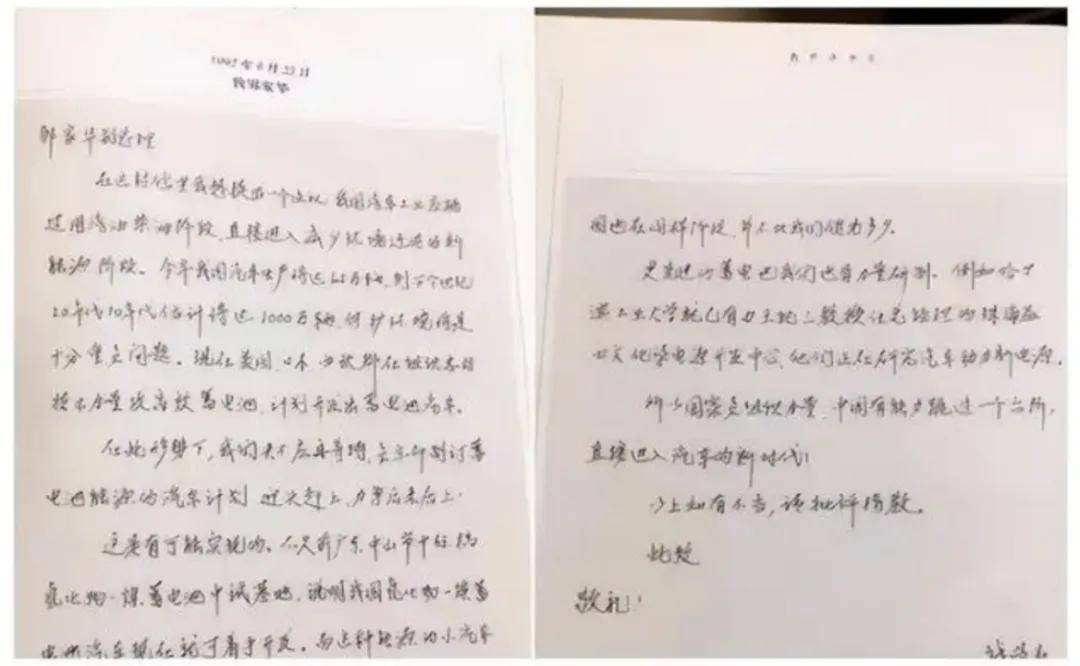 1992年8月22日
致邹家华
邹家华副总理
在这封信里我想提出一个建议:我国汽车工业应跳
过用汽油柴油阶段,直接进入减少环境污染的新
能源阶段。今年我国汽车生产将达 万辆,到下个世纪
20年代10年代估计将达1000万辆,保护环境将是
十分重要问题。现在美国、日本、西欧都在组织各自的
技术力量攻高效蓄电池,计划开发出蓄电池汽车。
在此形势下,我们决不应再等待,要立即制订蓄
电池能源的汽车计划,迎头赶上,力争后来居上。
这是有可能实现的。不久前广东中山市中标
氢化物-镍蓄电池中试基地,说明我国氢化物-镍蓄
电池汽车现在就可着手开发。而这种能源的小汽车
国也在同样阶段,并不比我们领先多少。
更先进的蓄电池我们也有力量研制。例如哈尔
滨工业大学就已有以王纪三教授任总经理的珠海益
士文化学电源开发中心,他们正在研究汽车动力新电源。
所以国家要组织力量,中国有能力跳过一个台阶,
直接进入汽车的新时代!
以上如有不当,请批评指教。
此致
敬礼!